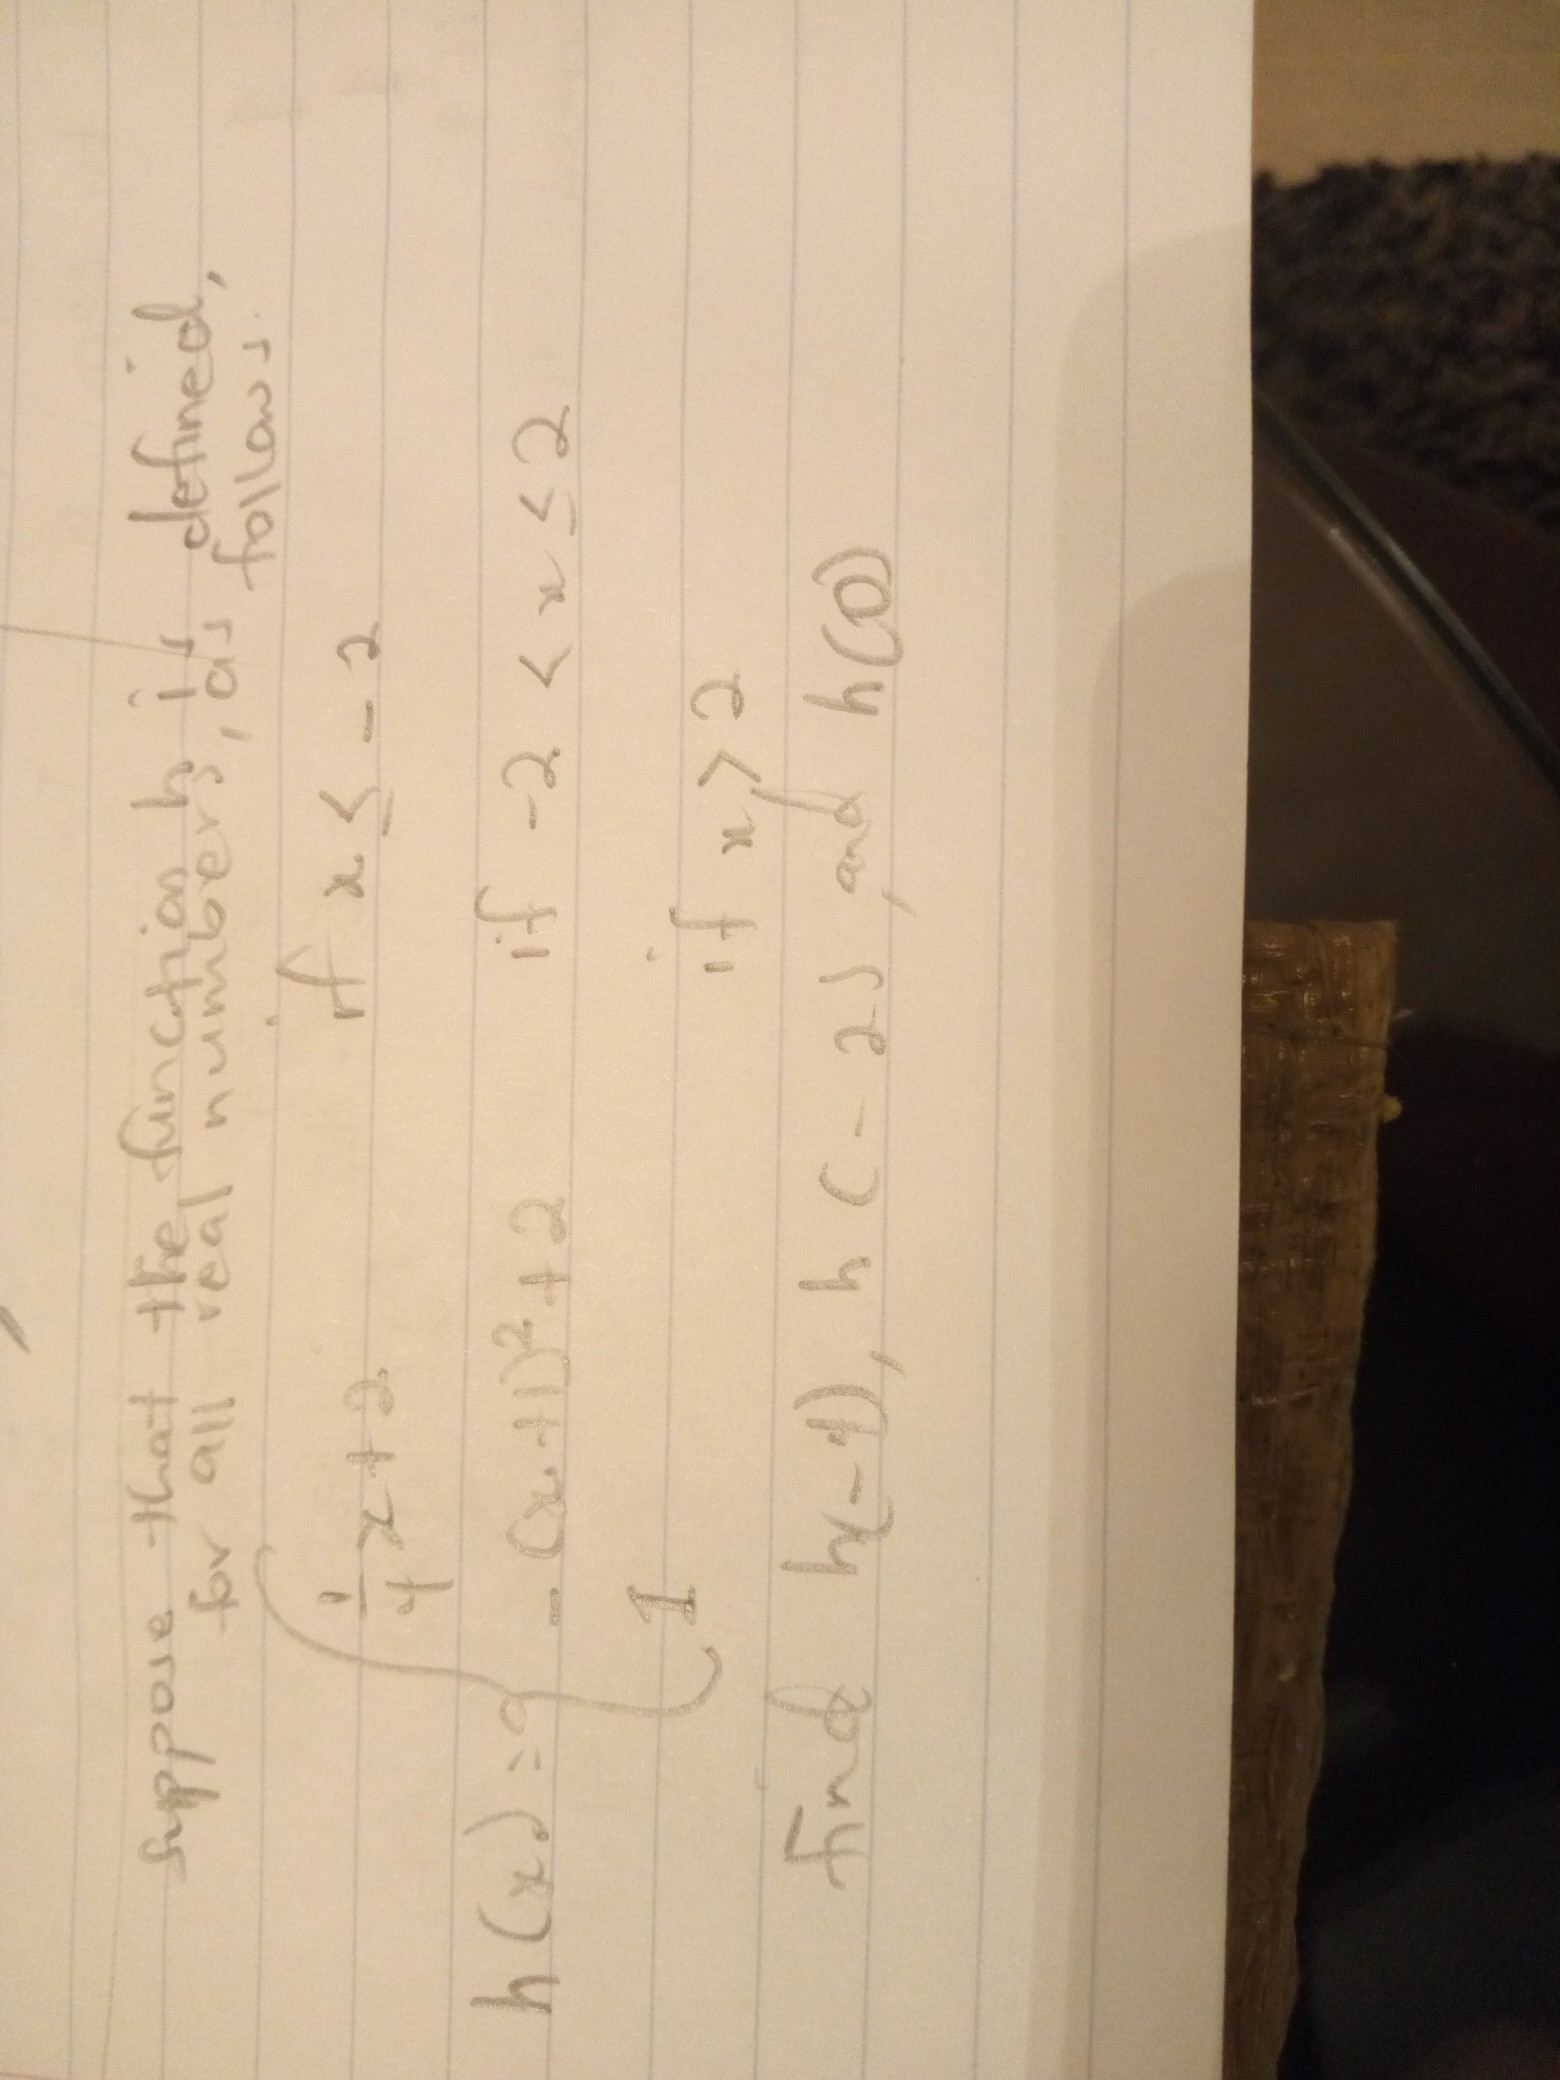 suppose that the function h is defined,
for all real numbers, as follows.
1/4 x + 2 if x ≤ -2
h(x) = { -(x+1)² + 2 if -2 < x ≤ 2
1 if x > 2
find h(-4), h(-2), and h(0)